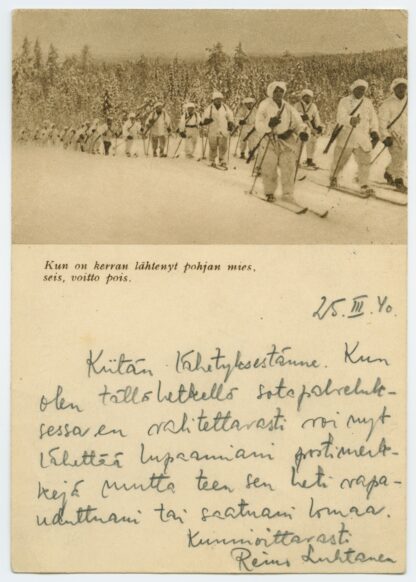 Kun on kerran lähtenyt pohjan mies,
seis, voitto pois.
25. III. 40.
Kiitän lähetyksestänne. Kun
olen tällä hetkellä sotapalveluk-
sessa en valitettavasti voi nyt
lähettää lupaamiani postimerk-
kejä mutta teen sen heti vapa-
uduttuani tai saatuani lomaa.
Kunnioittavasti
Reino Luhtanen